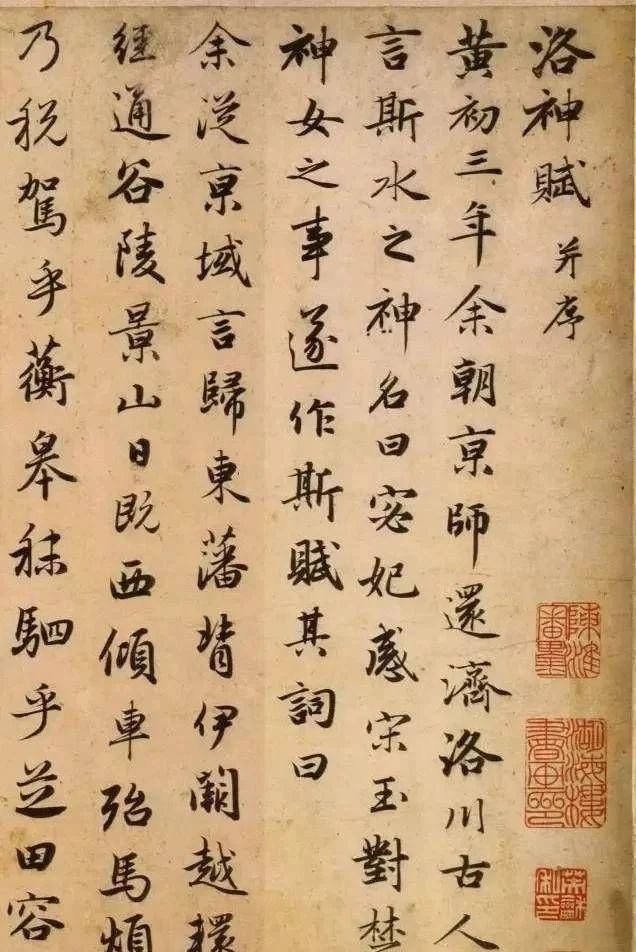 洛神賦 并序
黄初三年余朝京師還濟洛川古人
言斯水之神名曰宓妃感宋玉對楚
神女之事遂作斯賦其詞曰
余從京域言歸東藩背伊闕越轘
經通谷陵景山日既西傾車殆馬煩
乃税駕乎蘅皋秣駟乎芝田容